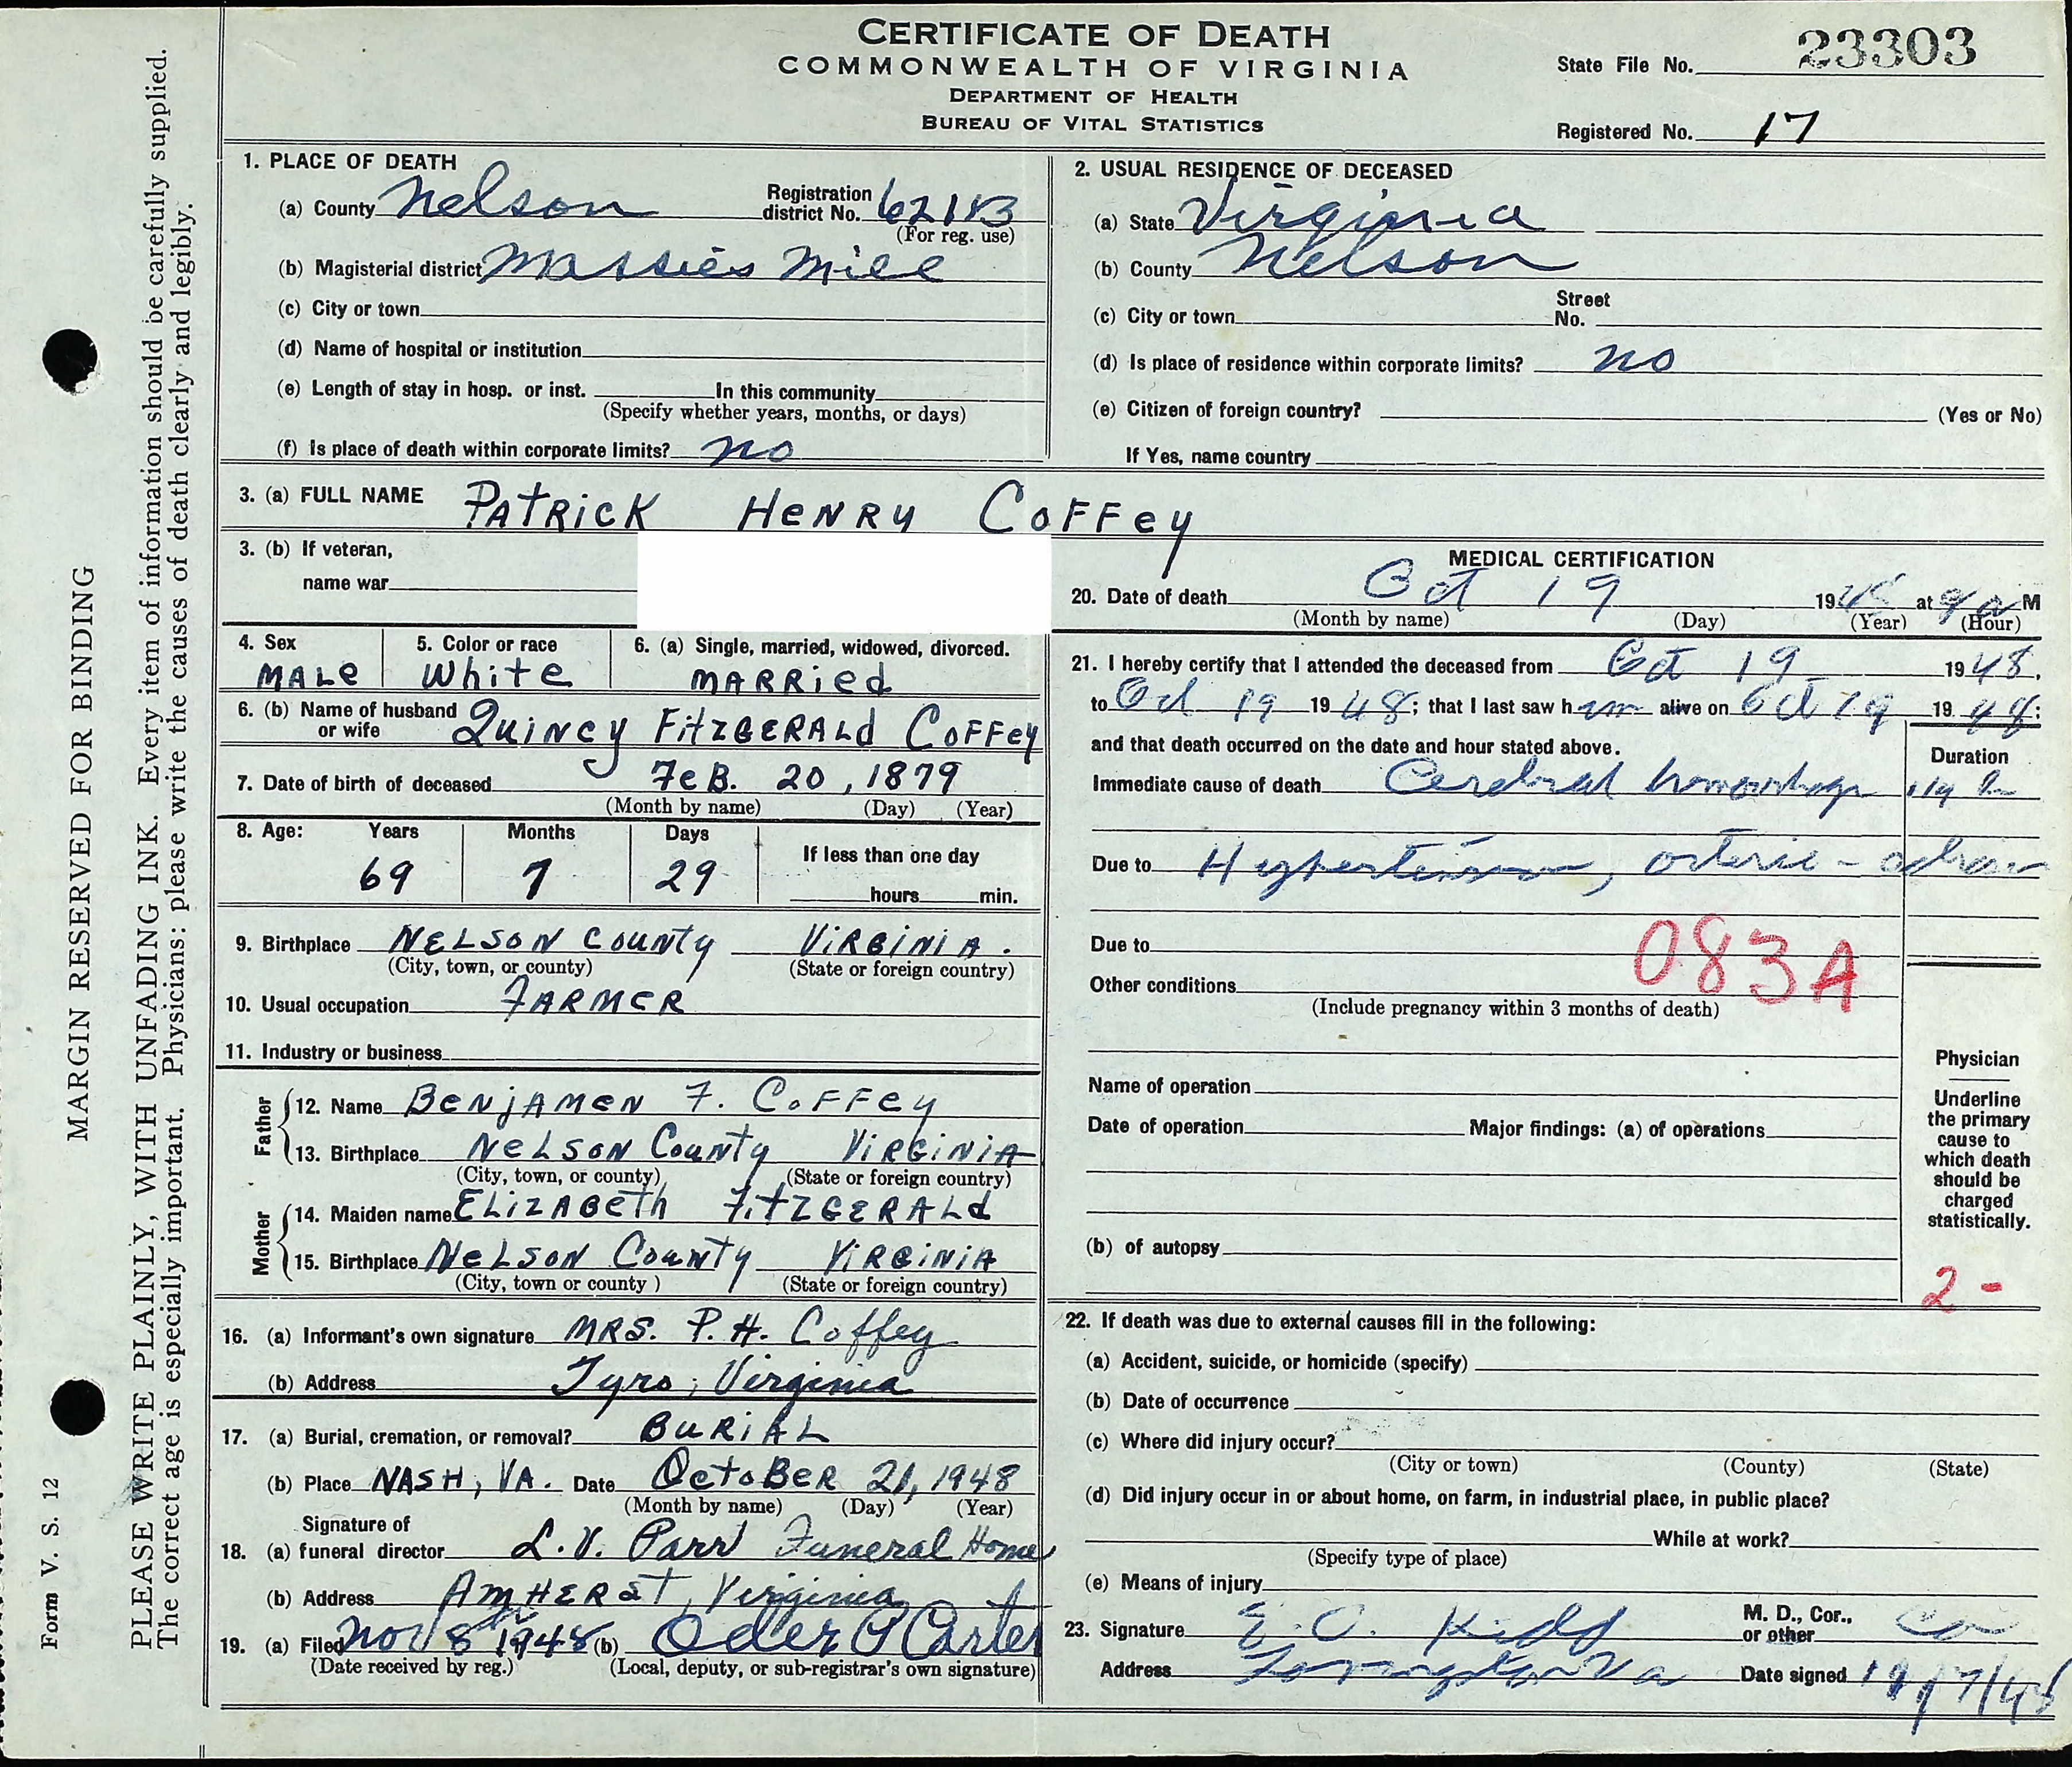 CERTIFICATE OF DEATH
COMMONWEALTH OF VIRGINIA
DEPARTMENT OF HEALTH
BUREAU OF VITAL STATISTICS
State File No. 23303
Registered No. 17
MARGIN RESERVED FOR BINDING
PLEASE WRITE PLAINLY, WITH UNFADING INK. Every item of information should be carefully supplied.
The correct age is especially important. Physicians: please write the causes of death clearly and legibly.
Form V. S. 12
1. PLACE OF DEATH
(a) County Nelson Registration district No.
(For reg. use)
(b) Magisterial district Massies Mill
(c) City or town
(d) Name of hospital or institution
(e) Length of stay in hosp. or inst. In this community
(Specify whether years, months, or days)
(f) Is place of death within corporate limits? no
2. USUAL RESIDENCE OF DECEASED
(a) State Virginia
(b) County Nelson
(c) City or town Street No.
(d) Is place of residence within corporate limits? no
(e) Citizen of foreign country? (Yes or No)
If Yes, name country
3. (a) FULL NAME PATRICK HENRY COFFEY
3. (b) If veteran,
name war
4. Sex 5. Color or race 6. (a) Single, married, widowed, divorced.
MALE White MARRIED
6. (b) Name of husband or wife QUINCY FITZGERALD COFFEY
7. Date of birth of deceased FEB. 20, 1879
(Month by name) (Day) (Year)
8. Age: Years Months Days If less than one day
69 7 29 hours min.
9. Birthplace NELSON COUNTY VIRGINIA.
(City, town, or county) (State or foreign country)
10. Usual occupation FARMER
11. Industry or business
Father
12. Name BENJAMEN F. COFFEY
13. Birthplace NELSON COUNTY VIRGINIA
(City, town, or county) (State or foreign country)
Mother
14. Maiden name ELIZABETH FITZGERALD
15. Birthplace NELSON COUNTY VIRGINIA
(City, town or county ) (State or foreign country)
16. (a) Informant's own signature MRS. P. H. Coffey
(b) Address Tyro, Virginia
17. (a) Burial, cremation, or removal? BURIAL
(b) Place NASH, VA. Date OCTOBER 21, 1948
(Month by name) (Day) (Year)
Signature of
18. (a) funeral director L. V. Parr Funeral Home
(b) Address AMHERST, Virginia
19. (a) Filed Nov 8th 1948 (b) Carter
(Date received by reg.) (Local, deputy, or sub-registrar's own signature)
MEDICAL CERTIFICATION
20. Date of death Oct 19 1948 at 9 a M
(Month by name) (Day) (Year) (Hour)
21. I hereby certify that I attended the deceased from Oct 19 1948,
to Oct 19 1948; that I last saw him alive on Oct 19 1948;
and that death occurred on the date and hour stated above.
Duration
Immediate cause of death Cerebral
Due to Hypertension,
Due to
083A
Other conditions
(Include pregnancy within 3 months of death)
Name of operation
Date of operation Major findings: (a) of operations
(b) of autopsy
Physician
Underline
the primary
cause to
which death
should be
charged
statistically.
2 -
22. If death was due to external causes fill in the following:
(a) Accident, suicide, or homicide (specify)
(b) Date of occurrence
(c) Where did injury occur?
(City or town) (County) (State)
(d) Did injury occur in or about home, on farm, in industrial place, in public place?
While at work?
(Specify type of place)
(e) Means of injury
23. Signature E. C. Kidd M. D., Cor., or other Cor
Address Lovingston Va Date signed